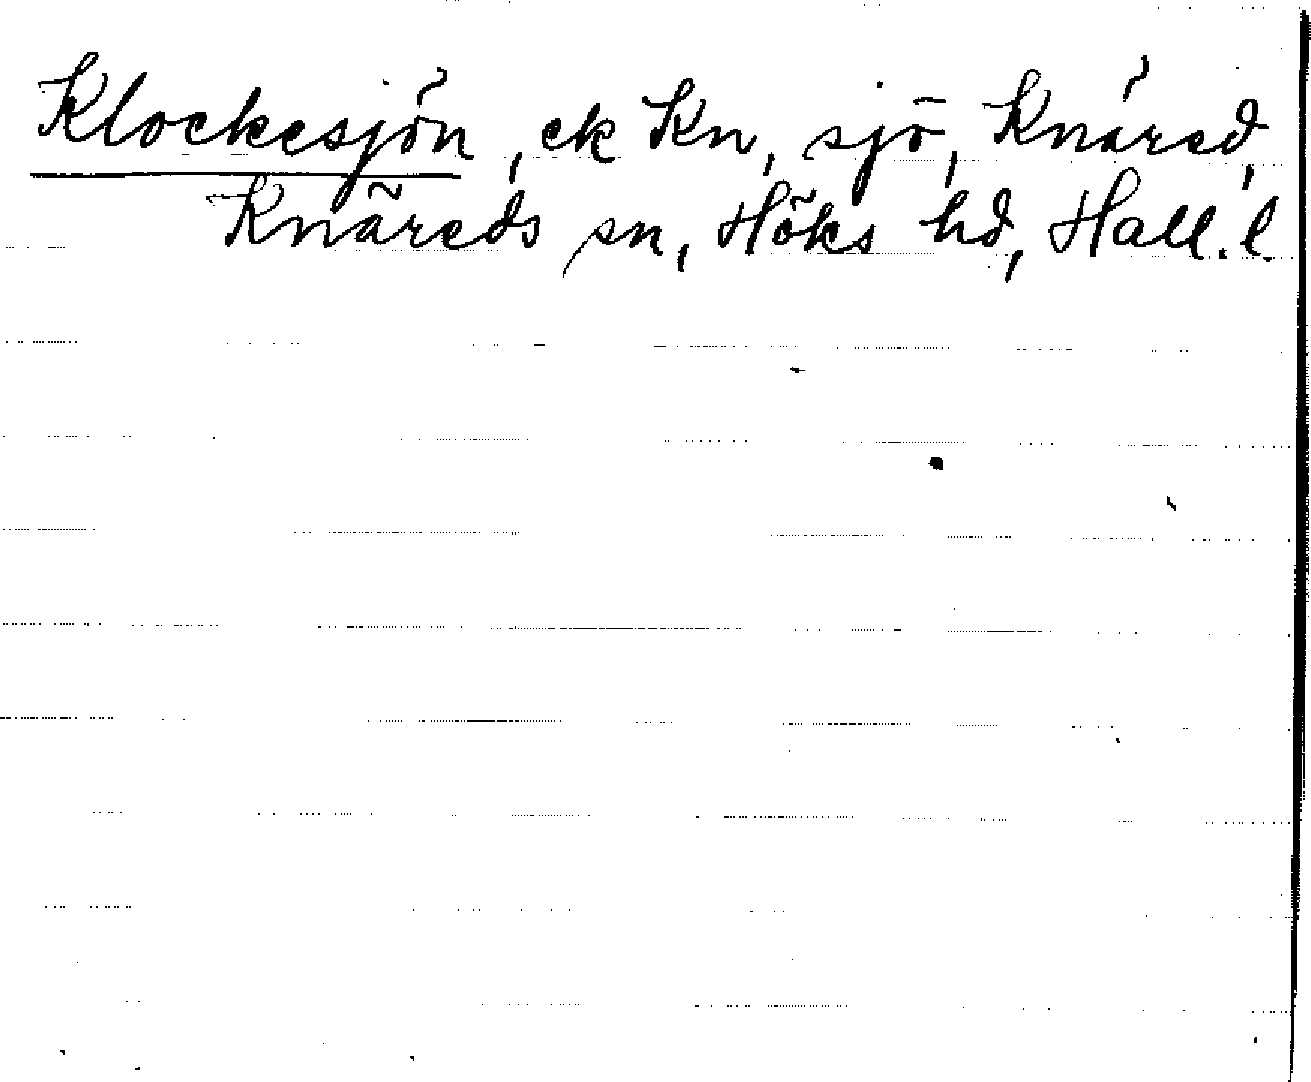 Klockesjön, ek Kn, sjö, Knäred,
Knäreds sn, Höks hd, Hall. l.